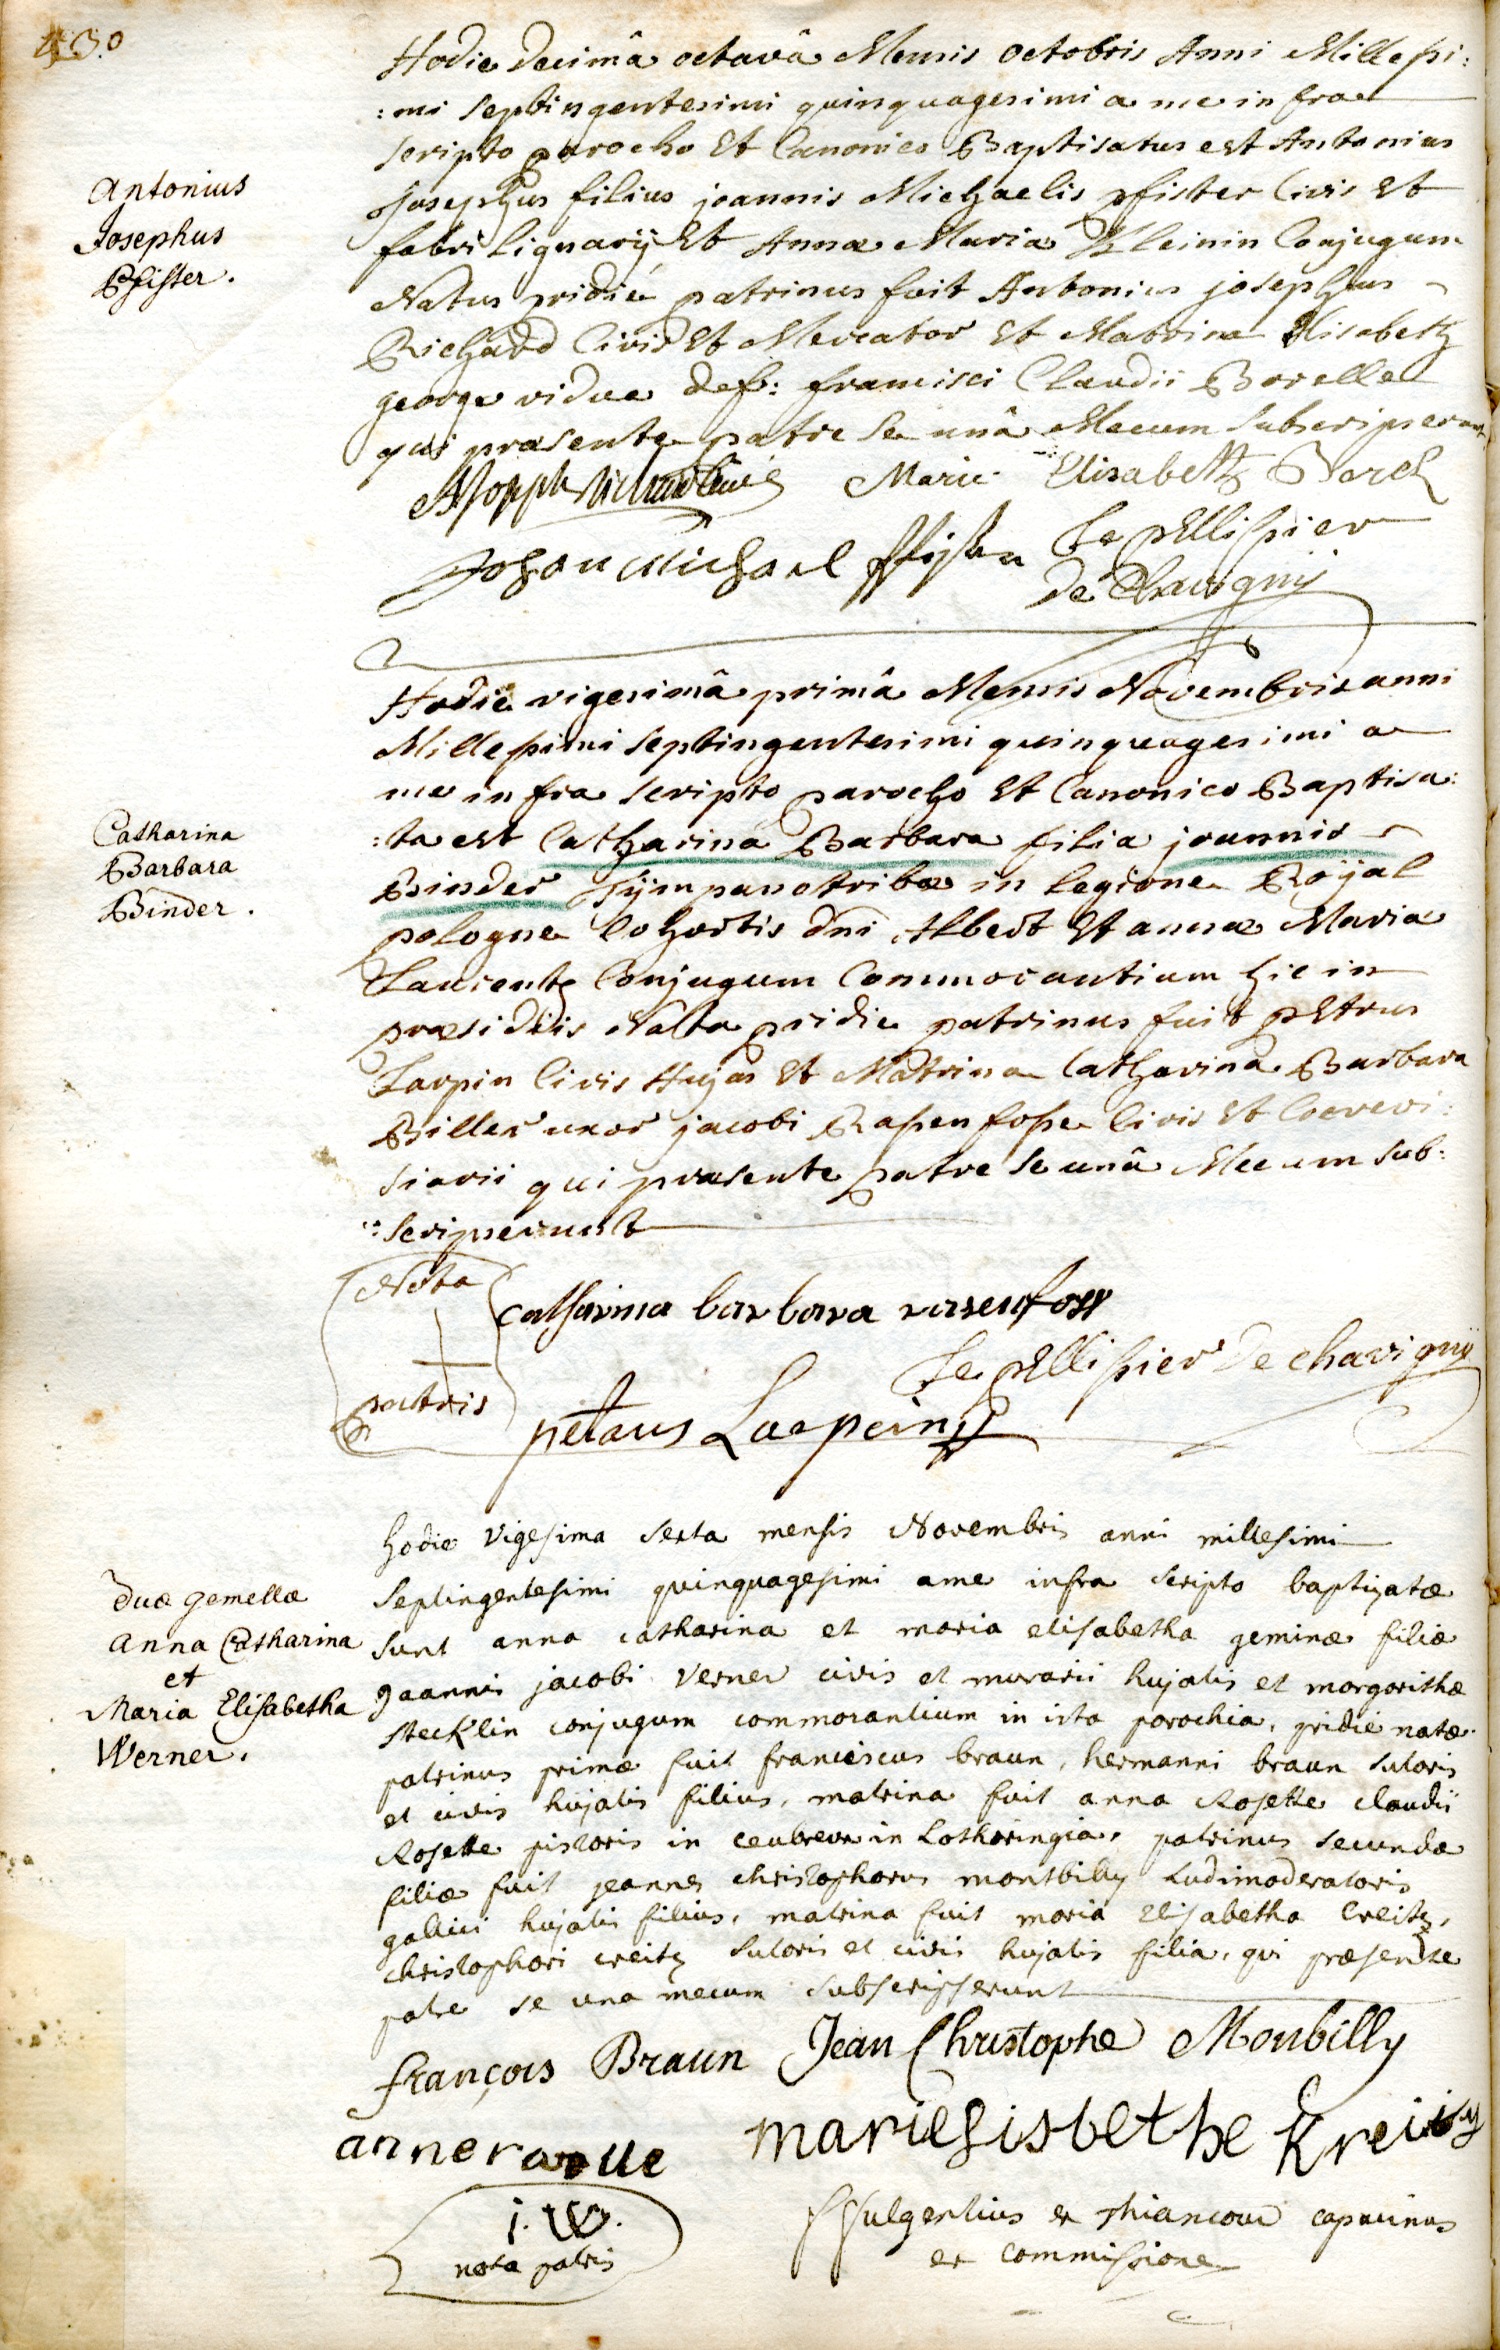 430
Hodie decimâ octavâ Mensis octobris Anni Millessi:
:mi septingentesimi quinquagesimi a me infra
scripto parocho Et Canonico Baptisatus est Antonius
Josephus filius joannis Michaelis pfister Civis Et
fabri lignarij Et Annæ Maria Kleinin Conjugum
Natus pridie patrinus fuit Antonius josephus
Richard Civis Et Mercator Et Matrina Elisabetz
george vidua def: francisci Claudii Borelle
qui præsente patre se unâ Mecum subscripserunt
Antonius
Josephus
Pfister.
Marie Elisabetz Borel
Johan Michael Pfister
Le pEllissier
de Chavignij
Hodie vigesimâ primâ Mensis Novembris anni
Millessimi septingentesimi quinquagesimi a
me infra scripto parocho Et Canonico Baptisa:
:ta est Catharina Barbara filia joannis
Binder Tijmpanotribæ in legione Roijal
pologne Cohortis dni Albert Et annæ Maria
Laurentz Conjugum Commorantium hic in
præsidiis Nata pridie patrinus fuit pEtrus
Larpin Civis Hujas Et Matrina Catharina Barbara
Biller uxor jacobi Rassenfosse Civis Et Cerevi:
siarii qui præsente patre se unâ Mecum sub:
:scripserunt
Catharina
Barbara
Binder.
Nota
patris
catharina barbara rasenfoss
Le pEllissier de chavignij
petrus Larpein
hodie vigesima sexta mensis Novembris anni millesimi
septingentesimi quinquagesimi a me infra scripto baptizatæ
sunt anna catharina et maria elisabetha geminæ filiæ
joannis jacobi Verner civis et murarii hujatis et margarithæ
stecklin conjugum commorantium in ista parochia, pridie natæ.
patrinus primæ fuit franciscus braun, hermanni braun sutoris
et civis hujatis filius, matrina fuit anna Rosette claudii
Rosette pistoris in in Lotharingia, patrinus secundæ
filiæ fuit jeannes christophorus montbilly Ludimoderatoris
gallici hujatis filius, matrina fuit maria Elisabetha Creitz,
christophori creitz sutoris et civis hujatis filia, qui præsente
patre se una mecum subscripserunt
duæ gemellæ
Anna Catharina
et
Maria Elisabetha
Werner.
françois Braun Jean Christophe Monbilly
anne
mariesisbethe Kreitz
j. W.
nota patris
f fulgentius ex thiancour capucinus
ex commissione